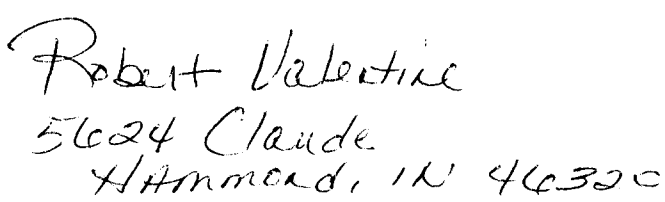 Robert Valentine
5624 Claude
Hammond, IN 46320